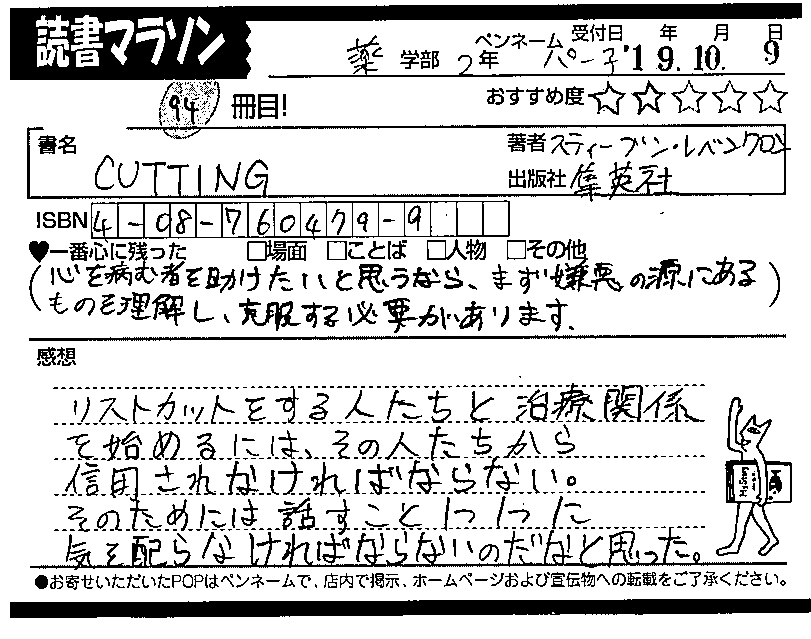 読書マラソン
薬 学部 2年 ペンネーム パー子 受付日 '19.10.9 年 月 日
94 冊目! おすすめ度 ☆☆☆☆☆
書名 CUTTING
著者 スティーブン・レベンクロン
出版社 集英社
ISBN 4-08-760479-9
♥一番心に残った □場面 □ことば □人物 □その他
(心を病む者を助けたいと思うなら、まず嫌悪の源にある
ものを理解し、克服する必要があります。)
感想
リストカットをする人たちと治療関係
を始めるには、その人たちから
信用されなければならない。
そのためには話すこと1つ1つに
気を配らなければならないのだなと思った。
●お寄せいただいたPOPはペンネームで、店内で掲示、ホームページおよび宣伝物への転載をご了承ください。